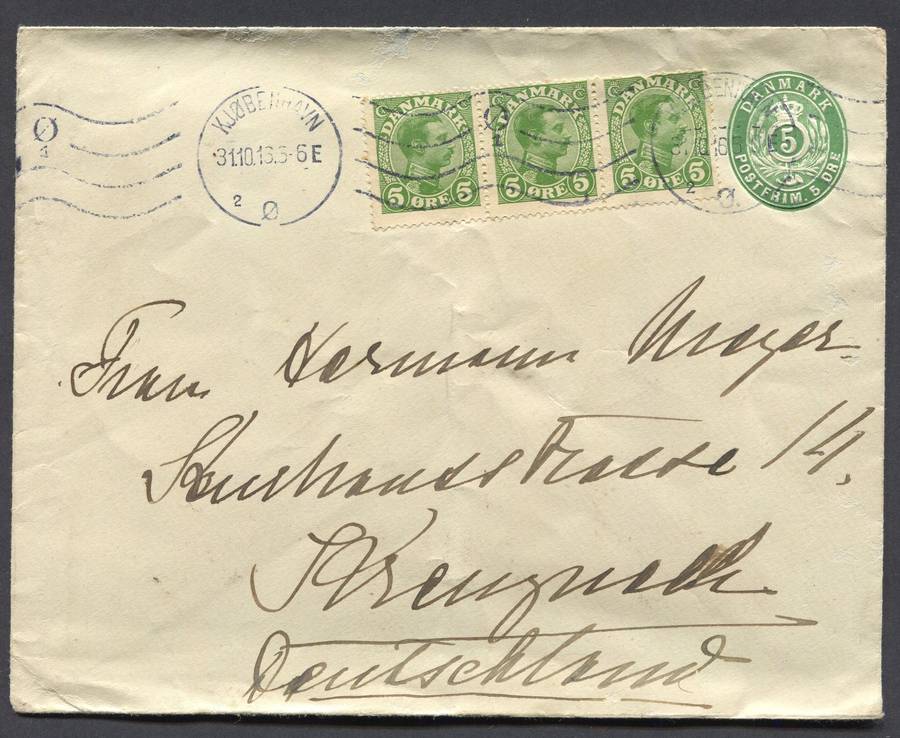 Ø
KJØBENHAVN
31.10.16.5-6 E
2 Ø
DANMARK
5 ØRE 5
DANMARK
5 ØRE 5
DANMARK
5 ØRE 5
2 Ø
DANMARK
5
POSTFRIM. 5 ØRE
Frau Hermann Meyer
Kurhausstrasse 14.
Kreuznach
Deutschland